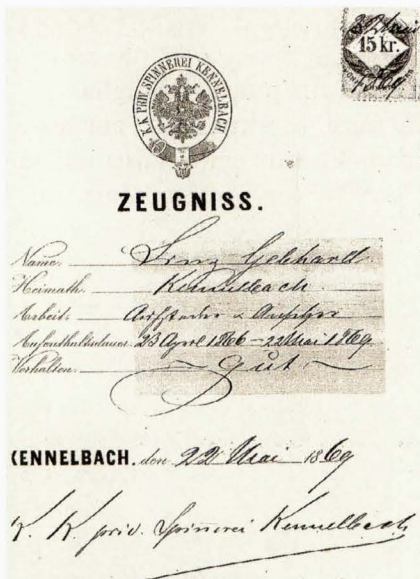 22 Mai
15 kr.
1869
K.K. PRIV. SPINNEREI KENNELBACH.
ZEUGNISS.
Name: Gebhard
Heimath. Kennelbach
Arbeit: Aufstecker &
Aufenthaltsdauer 23 April 1866 – 22 Mai 1869
Verhalten: – gut –
KENNELBACH. den 22 Mai 1869
K. K. priv. Spinnerei Kennelbach